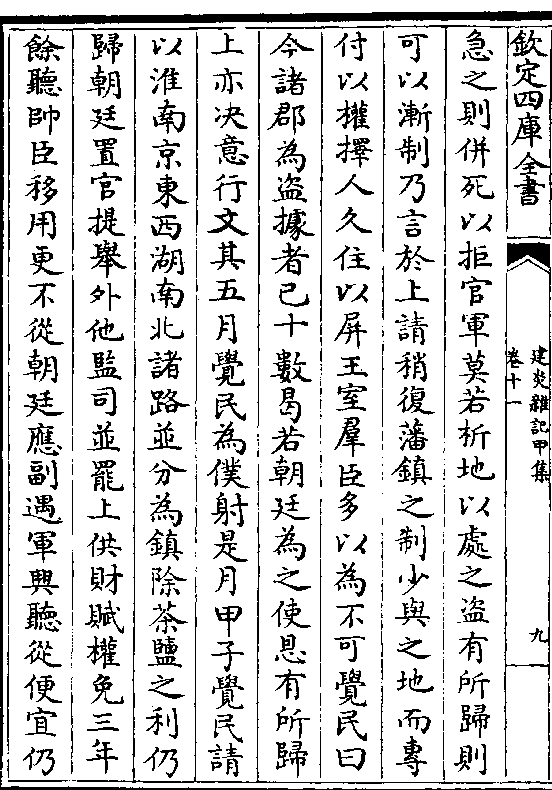 欽定四庫全書
建炎雜記甲集
卷十一
九
急之則併死以拒官軍莫若析地以處之盜有所歸則
可以漸制乃言於上請稍復藩鎮之制少與之地而專
付以權擇人久住以屏王室羣臣多以為不可覺民曰
今諸郡為盜據者已十數曷若朝廷為之使恩有所歸
上亦决意行文其五月覺民為僕射是月甲子覺民請
以淮南京東西湖南北諸路並分為鎮除茶鹽之利仍
歸朝廷置官提舉外他監司並罷上供財賦權免三年
餘聽帥臣移用更不從朝廷應副遇軍興聽從便宜仍